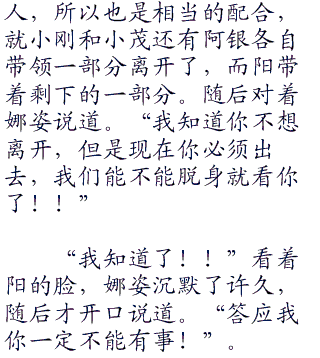 人，所以也是相当的配合，
就小刚和小茂还有阿银各自
带领一部分离开了，而阳带
着剩下的一部分。随后对着
娜姿说道。“我知道你不想
离开，但是现在你必须出
去，我们能不能脱身就看你
了！！”
“我知道了！！”看着
阳的脸，娜姿沉默了许久，
随后才开口说道。“答应我
你一定不能有事！”。